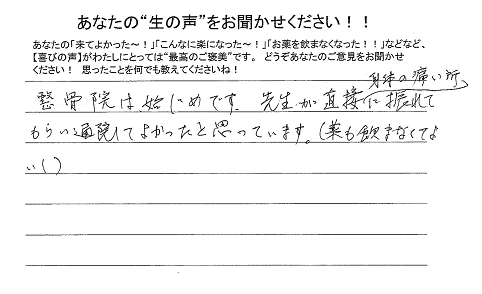 あなたの“生の声”をお聞かせください！！
あなたの「来てよかった～！」「こんなに楽になった～！」「お薬を飲まなくなった！！」などなど、
【喜びの声】がわたしにとっては“最高のご褒美”です。 どうぞあなたのご意見をお聞かせ
ください！ 思ったことを何でも教えてくださいね！
身体の痛い所
整骨院は始じめです。先生が直接に振れて
もらい通院してよかったと思っています。(薬も飲まなくてよ
い()